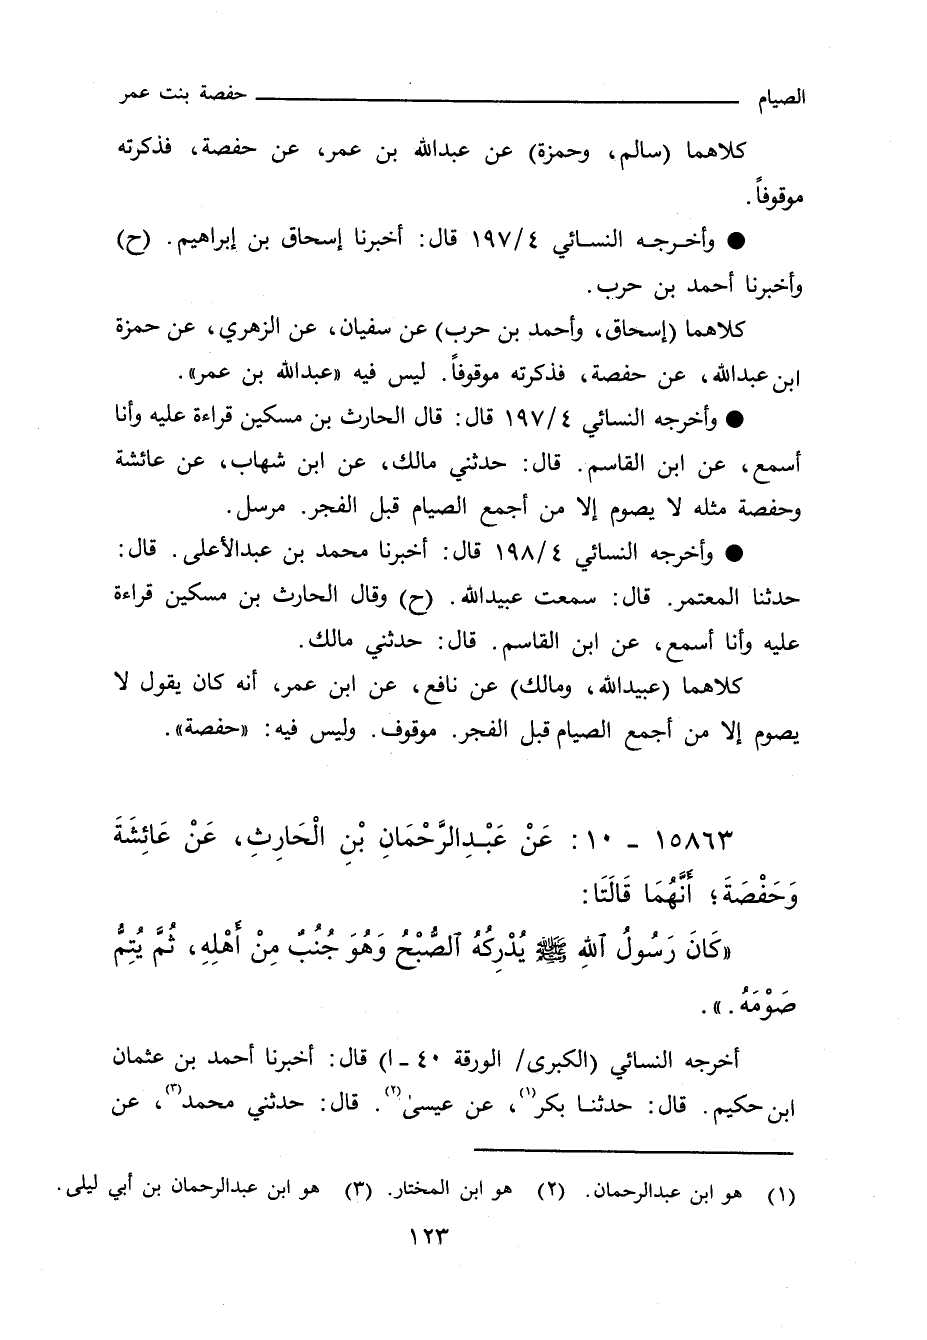 الصيام حفصة بنت عمر
كلاهما (سالم، وحمزة) عن عبدالله بن عمر، عن حفصة، فذكرته
موقوفاً.
● وأخرجه النسائي ٤/ ١٩٧ قال: أخبرنا إسحاق بن إبراهيم. (ح)
وأخبرنا أحمد بن حرب.
كلاهما (إسحاق، وأحمد بن حرب) عن سفيان، عن الزهري، عن حمزة
ابن عبدالله، عن حفصة، فذكرته موقوفاً. ليس فيه «عبدالله بن عمر».
● وأخرجه النسائي ٤/ ١٩٧ قال: قال الحارث بن مسكين قراءة عليه وأنا
أسمع، عن ابن القاسم. قال: حدثني مالك، عن ابن شهاب، عن عائشة
وحفصة مثله لا يصوم إلا من أجمع الصيام قبل الفجر. مرسل.
● وأخرجه النسائي ٤/ ١٩٨ قال: أخبرنا محمد بن عبدالأعلى. قال:
حدثنا المعتمر. قال: سمعت عبيدالله. (ح) وقال الحارث بن مسكين قراءة
عليه وأنا أسمع، عن ابن القاسم. قال: حدثني مالك.
كلاهما (عبيدالله، ومالك) عن نافع، عن ابن عمر، أنه كان يقول لا
يصوم إلا من أجمع الصيام قبل الفجر. موقوف. وليس فيه: «حفصة».
١٥٨٦٣ - ١٠: عَنْ عَبْدِالرَّحْمَانِ بْنِ الْحَارِثِ، عَنْ عَائِشَةَ
وَحَفْصَةَ؛ أَنَّهُمَا قَالَتَا:
«كَانَ رَسُولُ ٱللهِ ﷺ يُدْرِكُهُ ٱلصُّبْحُ وَهُوَ جُنُبٌ مِنْ أَهْلِهِ، ثُمَّ يُتِمُّ
صَوْمَهُ.».
أخرجه النسائي (الكبرى/ الورقة ٤٠ - ا) قال: أخبرنا أحمد بن عثمان
ابن حكيم. قال: حدثنا بكر(١)، عن عيسىٰ(٢). قال: حدثني محمد(٣)، عن
(١) هو ابن عبدالرحمان. (٢) هو ابن المختار. (٣) هو ابن عبدالرحمان بن أبي ليلى.
١٢٣